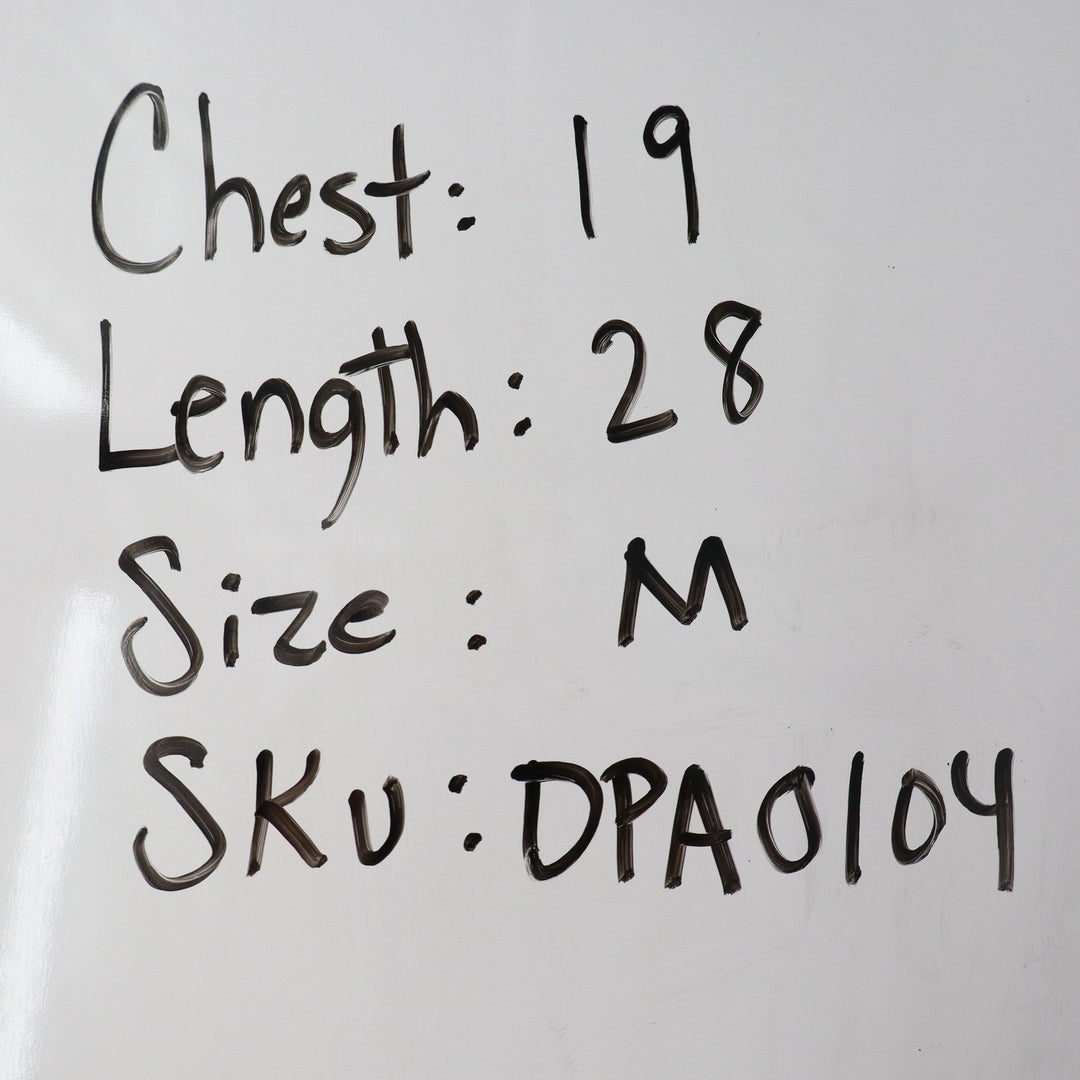 Chest: 19
Length: 28
Size: M
SKU: DPA0104